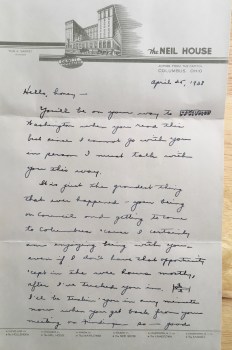 The NEIL HOUSE
COLUMBUS, OHIO
April 25, 1938
Hello,
You'll be on your way to
Washington when you read this
but since I cannot go with you
in person I must talk with
you this way.
It is just the grandest thing
that ever happened - your being
on Council and getting to come
to Columbus 'cause I certainly
am enjoying being with you
even if I don't have that opportunity
'cept in the wee hours mostly,
after I've tucked you in.
I'll be seein' you in any minute
now when you get back from your
meeting so good